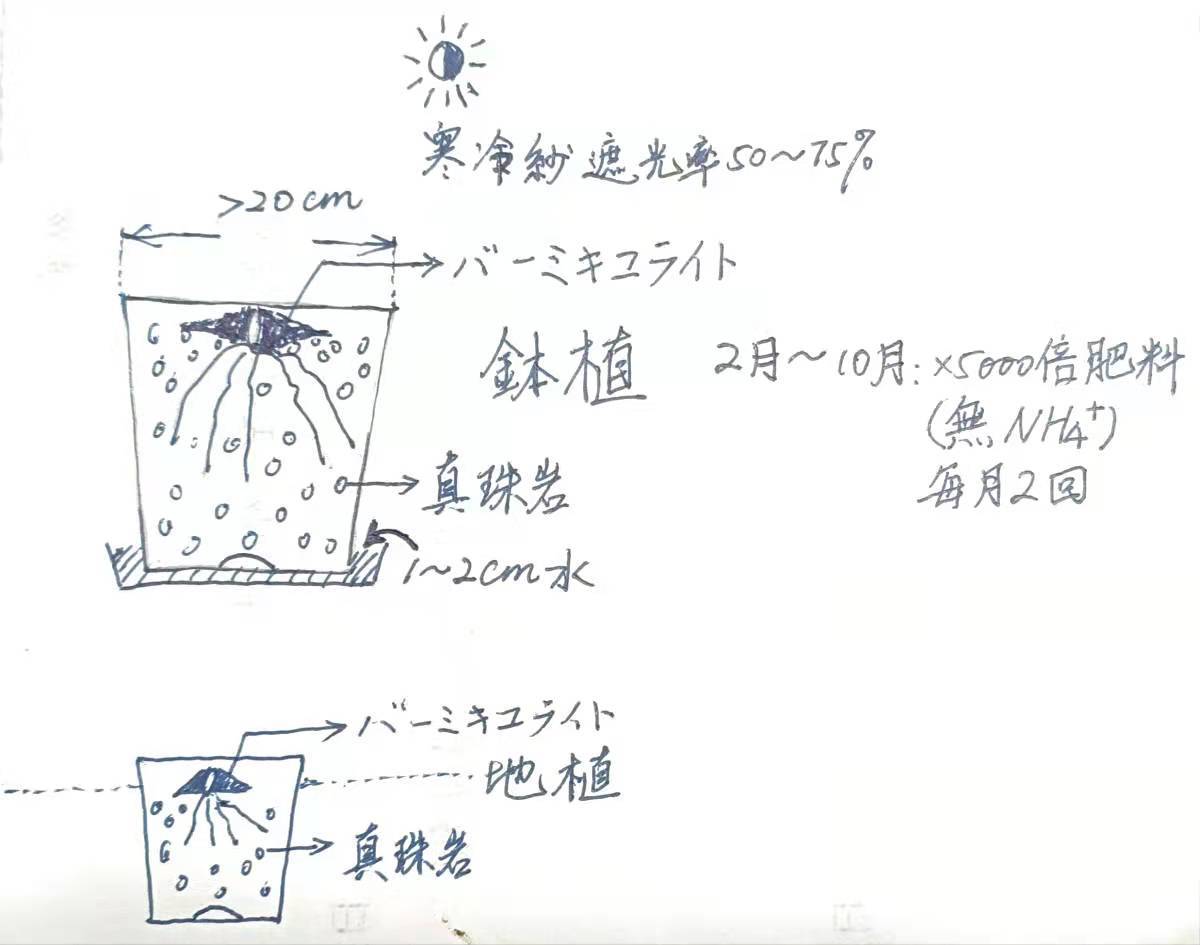 寒冷紗遮光率50～75%
>20cm
バーミキュライト
鉢植
2月～10月:×5000倍肥料
(無NH4+)
毎月2回
真珠岩
1~2cm水
バーミキュライト
地植
真珠岩